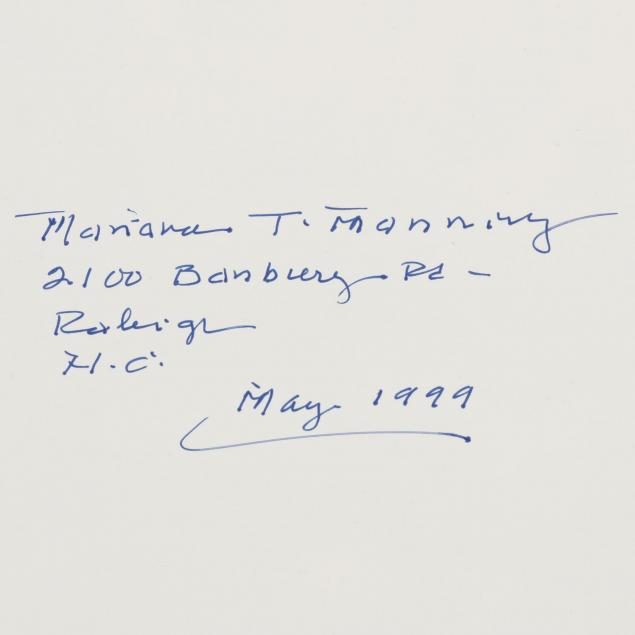 Mariana T. Manning
2100 Banbury Rd -
Raleigh
N.C.
May 1999